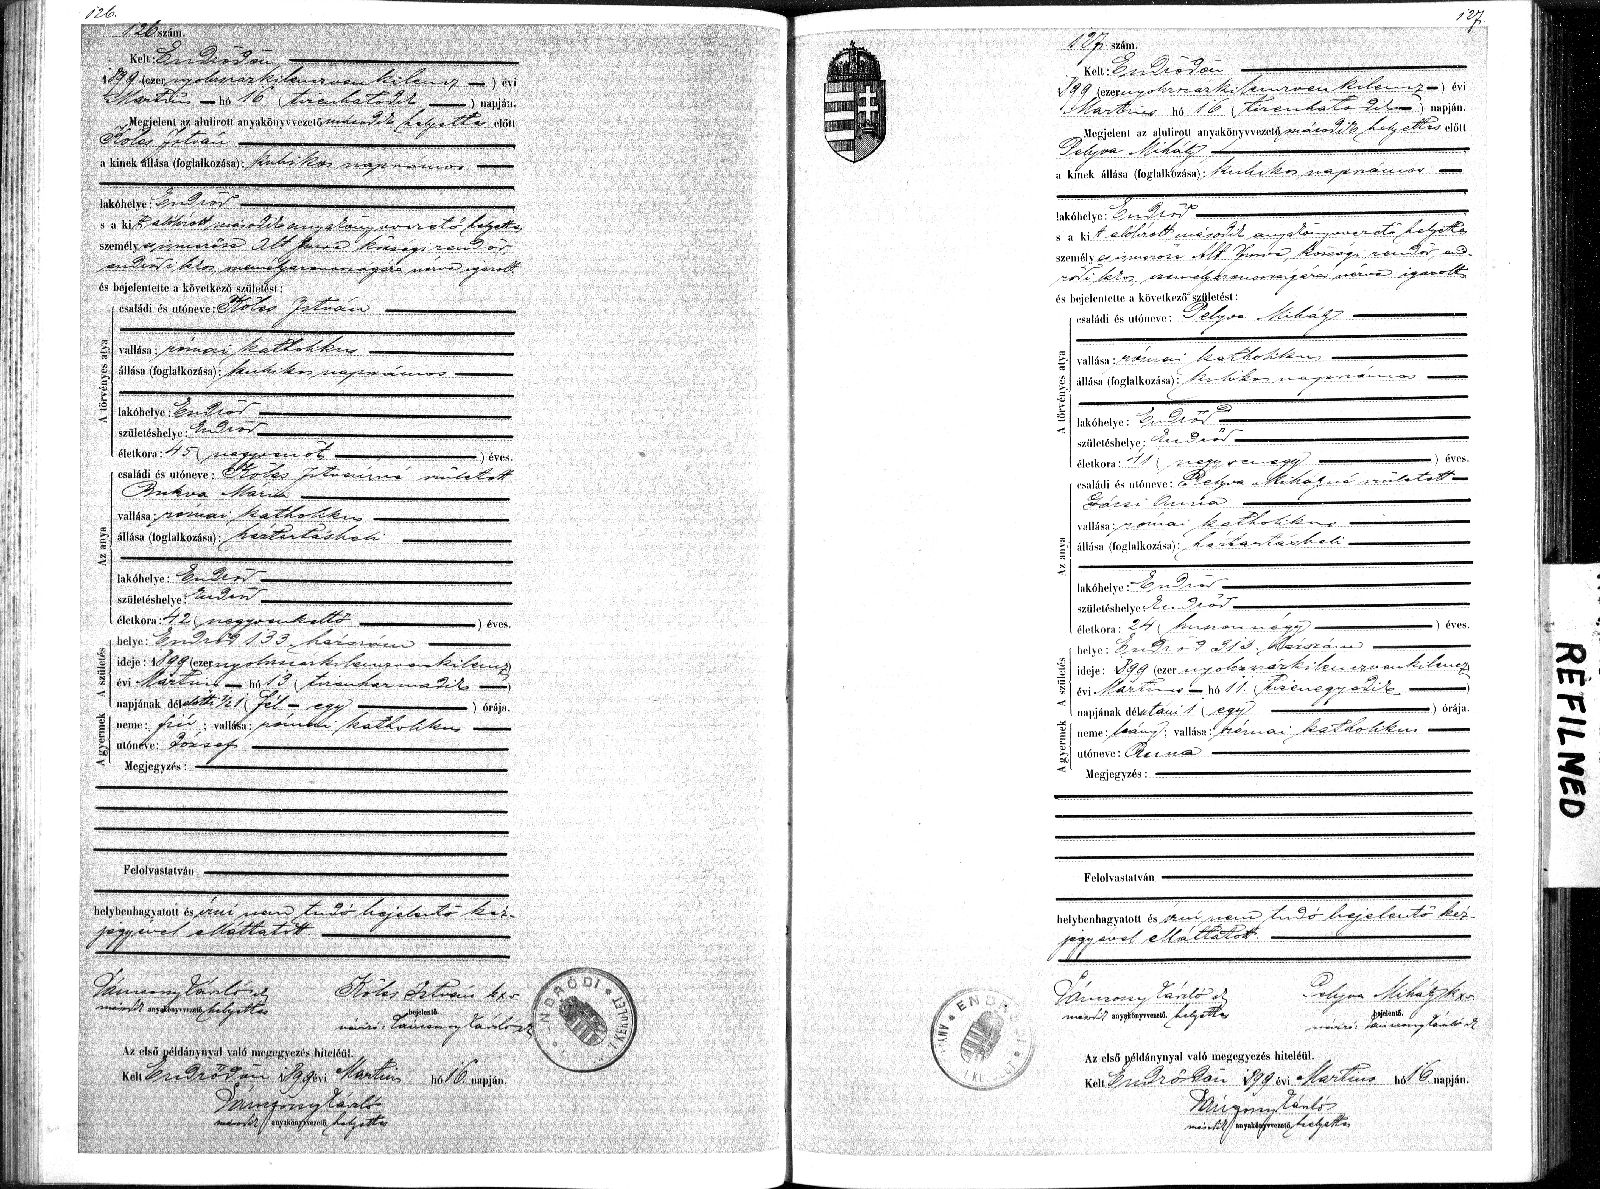 126.
126 szám.
Kelt: Endrődön
1899 (ezernyolczszázkilenczvenkilencz) évi
Martius hó 16 (tizenhatodik) napján.
Megjelent az alulirott anyakönyvvezető második helyettes előtt
Kóles István
a kinek állása (foglalkozása): kubikos napszámos
lakóhelye: Endrőd
s a kit alólirott második anyakönyvvezető helyettes
személy
és bejelentette a következő születést:
A törvényes atya
családi és utóneve: Kóles István
vallása: római katholikus
állása (foglalkozása): kubikos napszámos
lakóhelye: Endrőd
születéshelye: Endrőd
életkora: 45 (negyvenöt) éves.
Az anya
családi és utóneve: Kóles Istvánné született
Bukva Mária
vallása: római katholikus
állása (foglalkozása): háztartásbeli
lakóhelye: Endrőd
születéshelye: Endrőd
életkora: 42 (negyvenkettő) éves.
A születés
helye: Endrőd 133 házszám
ideje: 1899 (ezernyolczszázkilenczvenkilencz)
évi Martius hó 13 (tizenharmadik)
napjának délelőtti ½1 (fél egy) órája.
A gyermek
neme: fiú; vallása: római katholikus
utóneve: József
Megjegyzés:
Felolvastatván
helybenhagyatott és írni nem tudó bejelentő kéz-
jegyével elláttatott
második anyakönyvvezető helyettes
Kóles István
bejelentő.
Az első példánynyal való megegyezés hiteléül.
Kelt Endrődön 1899 évi Martius hó 16. napján.
második anyakönyvvezető helyettes
127.
127 szám.
Kelt: Endrődön
1899 (ezernyolczszázkilenczvenkilencz) évi
Martius hó 16 (tizenhatodik) napján.
Megjelent az alulirott anyakönyvvezető második helyettes előtt
Pelyva Mihály
a kinek állása (foglalkozása): kubikos napszámos
lakóhelye: Endrőd
s a kit alólirott második anyakönyvvezető helyettes
személy
és bejelentette a következő születést:
A törvényes atya
családi és utóneve: Pelyva Mihály
vallása: római katholikus
állása (foglalkozása): kubikos napszámos
lakóhelye: Endrőd
születéshelye: Endrőd
életkora: 41 (negyvenegy) éves.
Az anya
családi és utóneve: Pelyva Mihályné született
Anna
vallása: római katholikus
állása (foglalkozása): háztartásbeli
lakóhelye: Endrőd
születéshelye: Endrőd
életkora: 24 (huszonnégy) éves.
A születés
helye: Endrőd 213 házszám
ideje: 1899 (ezernyolczszázkilenczvenkilencz
évi Martius hó 11 (tizenegyedik)
napjának délutáni 1 (egy) órája.
A gyermek
neme: leány; vallása: római katholikus
utóneve: Anna
Megjegyzés:
Felolvastatván
helybenhagyatott és írni nem tudó bejelentő kéz-
jegyével elláttatott
második anyakönyvvezető. helyettes
Pelyva Mihály
bejelentő.
Az első példánynyal való megegyezés hiteléül.
Kelt Endrődön 1899 évi Martius hó 16 napján.
második anyakönyvvezető helyettes
REFILMED